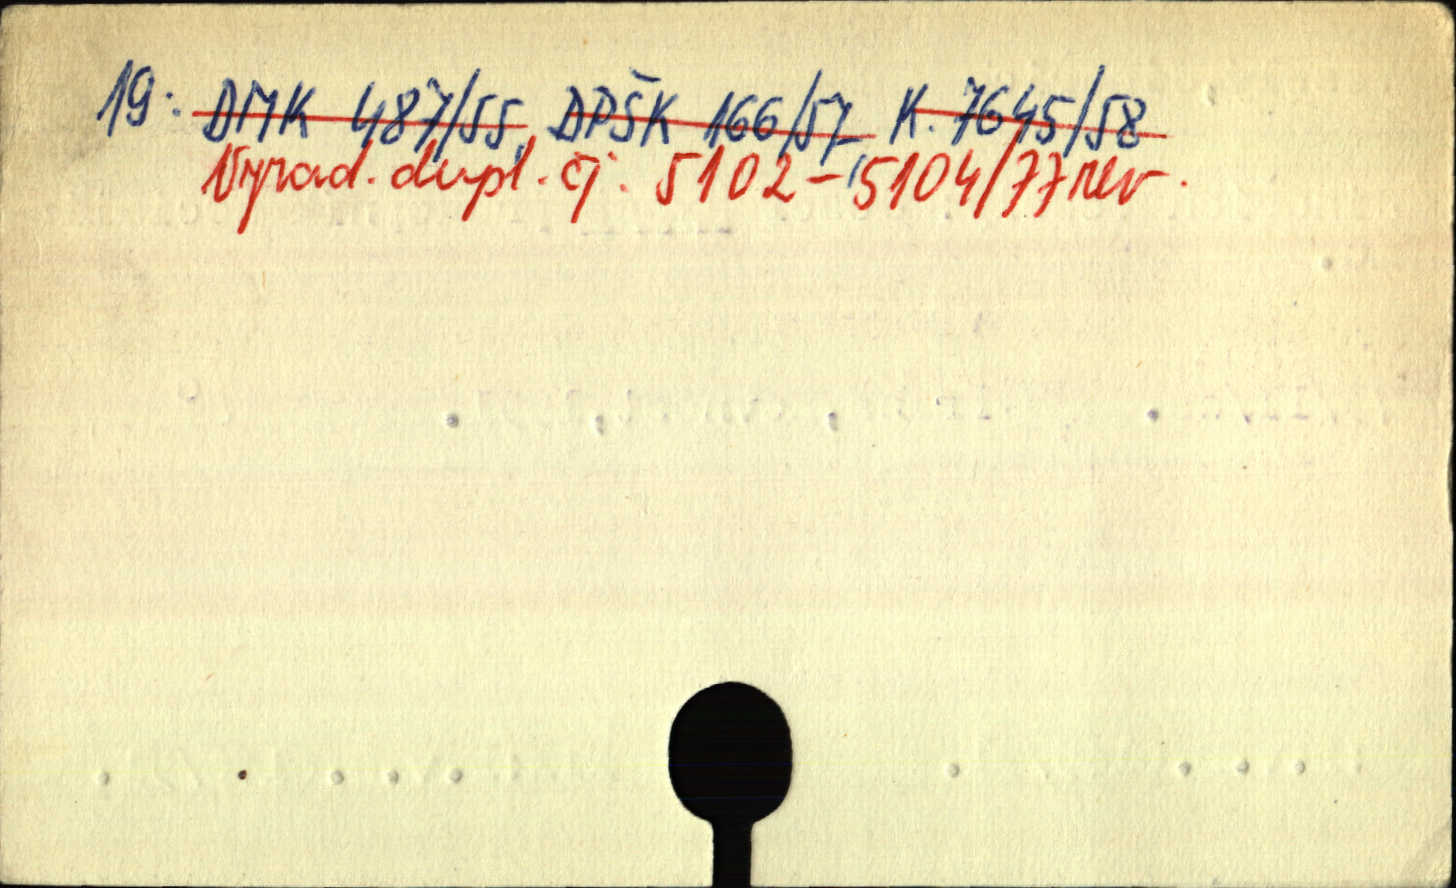 19: DMK 487/55, DPŠK 166/57, K. 7645/58
Vyrad. dupl. čj. 5102-5104/77 rev.